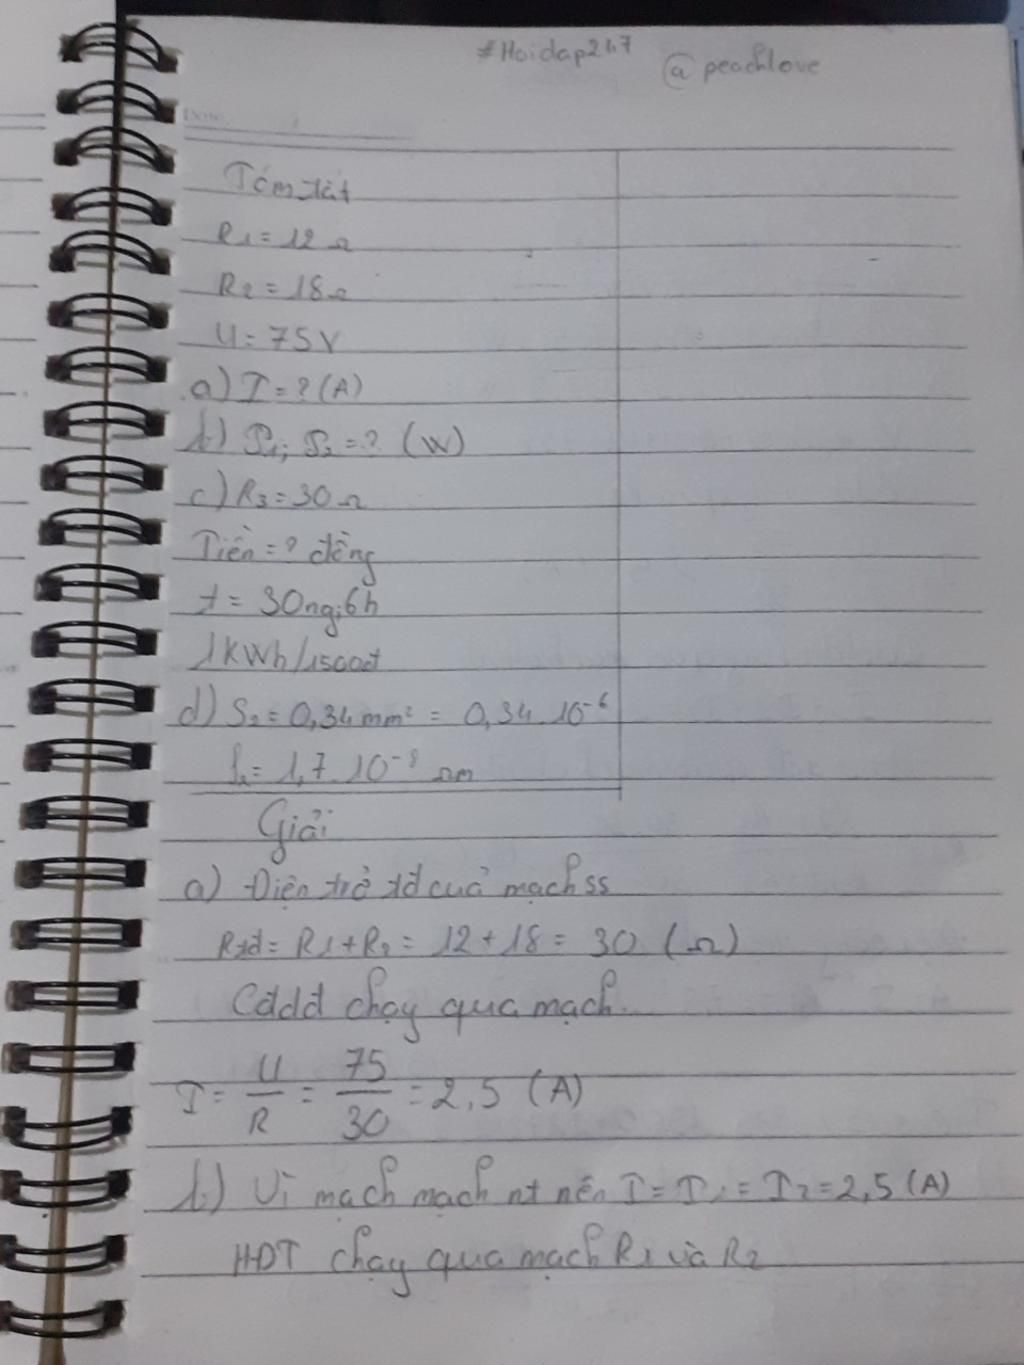 #Hoidap247
@peachlove
Tóm tắt
R1 = 12Ω
R2 = 18Ω
U = 75V
a) I = ? (A)
b) P1; P2 = ? (W)
c) R3 = 30Ω
Tiền = ? đồng
t = 30ng;6h
1KWh/1500đ
d) S2 = 0,34mm² = 0,34.10⁻⁶
= 1,7.10⁻⁸ Ωm
Giải
a) Điện trở tđ của mạch ss
Rtđ = R1 + R2 = 12 + 18 = 30 (Ω)
Cđdđ chạy qua mạch.
I = U/R = 75/30 = 2,5 (A)
b) Vì mạch mạch nt nên I = I1 = I2 = 2,5 (A)
HĐT chạy qua mạch R1 và R2